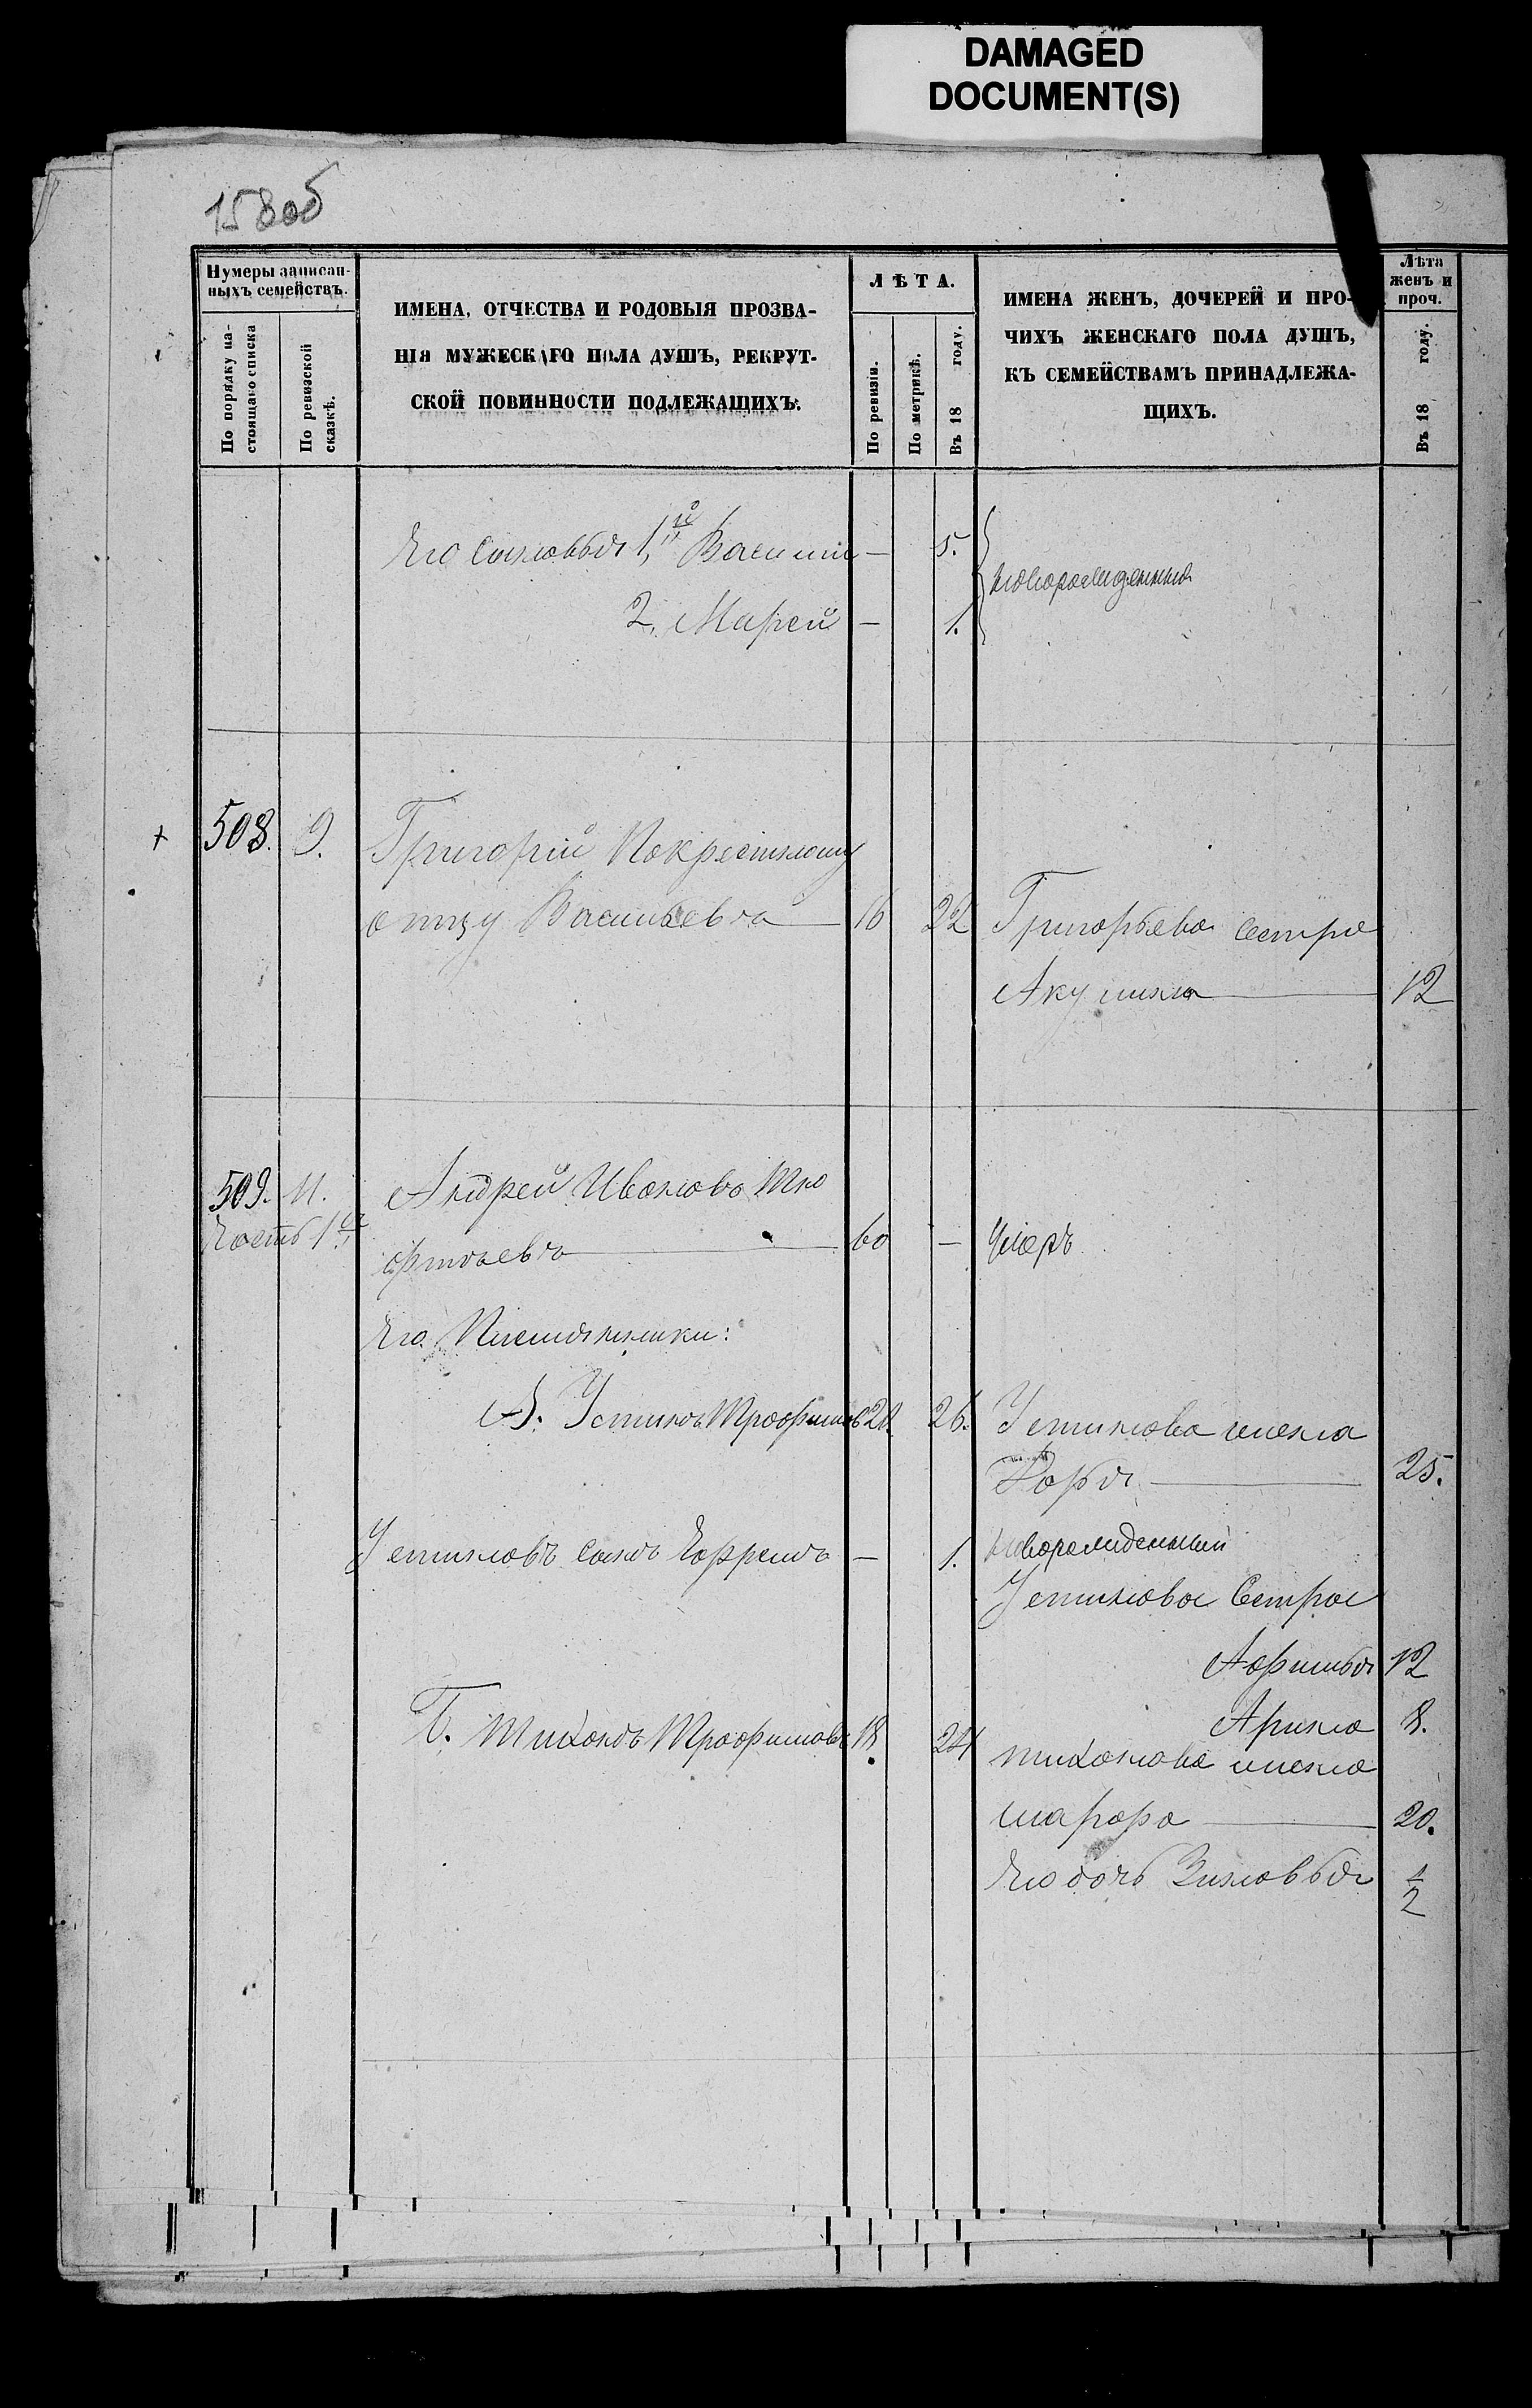 DAMAGED
DOCUMENT(S)
158об
Нумеры записан-
ныхъ семействъ.
По порядку на-
стоящаго списка
По ревизской
сказкѣ.
ИМЕНА, ОТЧЕСТВА И РОДОВЫЯ ПРОЗВА-
НІЯ МУЖЕСКАГО ПОЛА ДУШЪ, РЕКРУТ-
СКОЙ ПОВИННОСТИ ПОДЛЕЖАЩИХЪ.
ЛѢТА.
По ревизіи.
По метрикѣ.
Въ 18 году.
ИМЕНА ЖЕНЪ, ДОЧЕРЕЙ И ПРО-
ЧИХЪ ЖЕНСКАГО ПОЛА ДУШЪ,
КЪ СЕМЕЙСТВАМЪ ПРИНАДЛЕЖА-
ЩИХЪ.
Лѣта
женъ и
проч.
Въ 18 году.
Его сыновья 1й Василій — 5.
новорожденныя
2. Марей — 1.
508. 9. Григорій Покрестному
отцу Васильевъ 16 22 Григорьева сестра
Акулина 12
509. 11. Андрей Ивановъ
Часть 1я
60 — Умеръ
Его Племянники:
А. Устинъ Трофимовъ 20. 26. Устинова жена
Дарья 25.
Устиновъ сынъ Ефремъ — 1. новорожденный
Устинова Сестра
Афимья 12
Арина 8.
Б. Тихонъ Трофимовъ 18. 24 Тихонова жена
Марфа 20.
Его дочь Зиновья 1/2